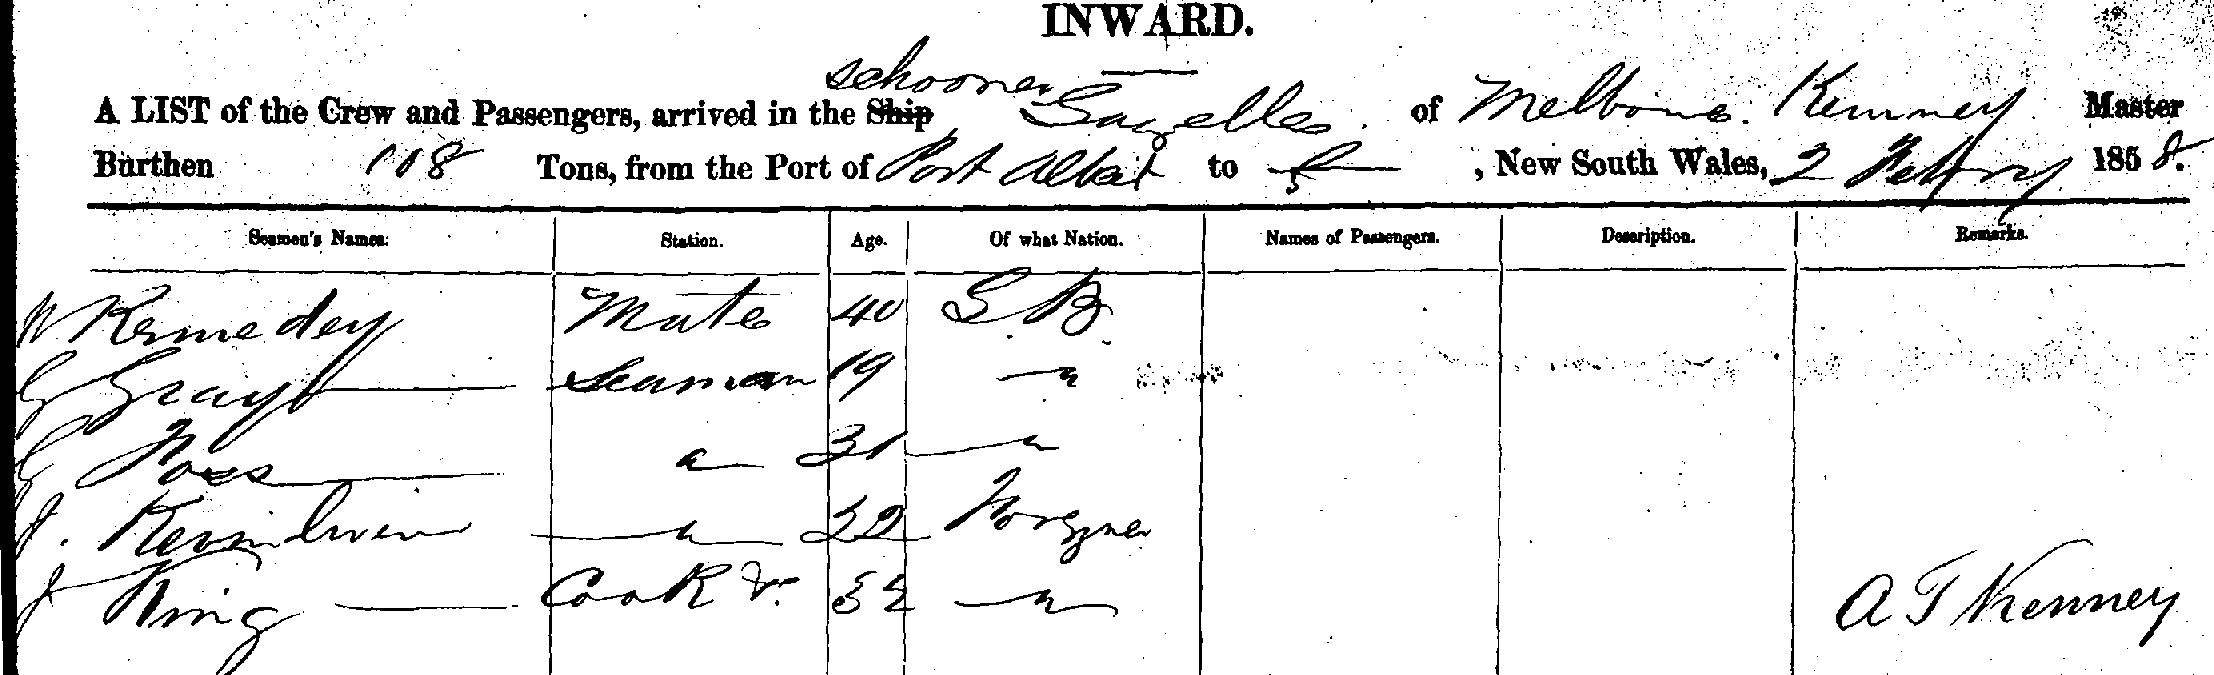 INWARD.
schooner
A LIST of the Crew and Passengers, arrived in the Ship Gazelle of Melbourne. Kenney Master
Burthen 108 Tons, from the Port of Port Albert to S, New South Wales, 2 Febry 1858.
Seamen's Names. Station. Age. Of what Nation. Names of Passengers. Description. Remarks.
W Kennedey Mate 40 G. B.
G Gray Seaman 19 "
G Foss " 31 "
J. 32 Foregner
J King Cook &. 32 "
A T Kenney